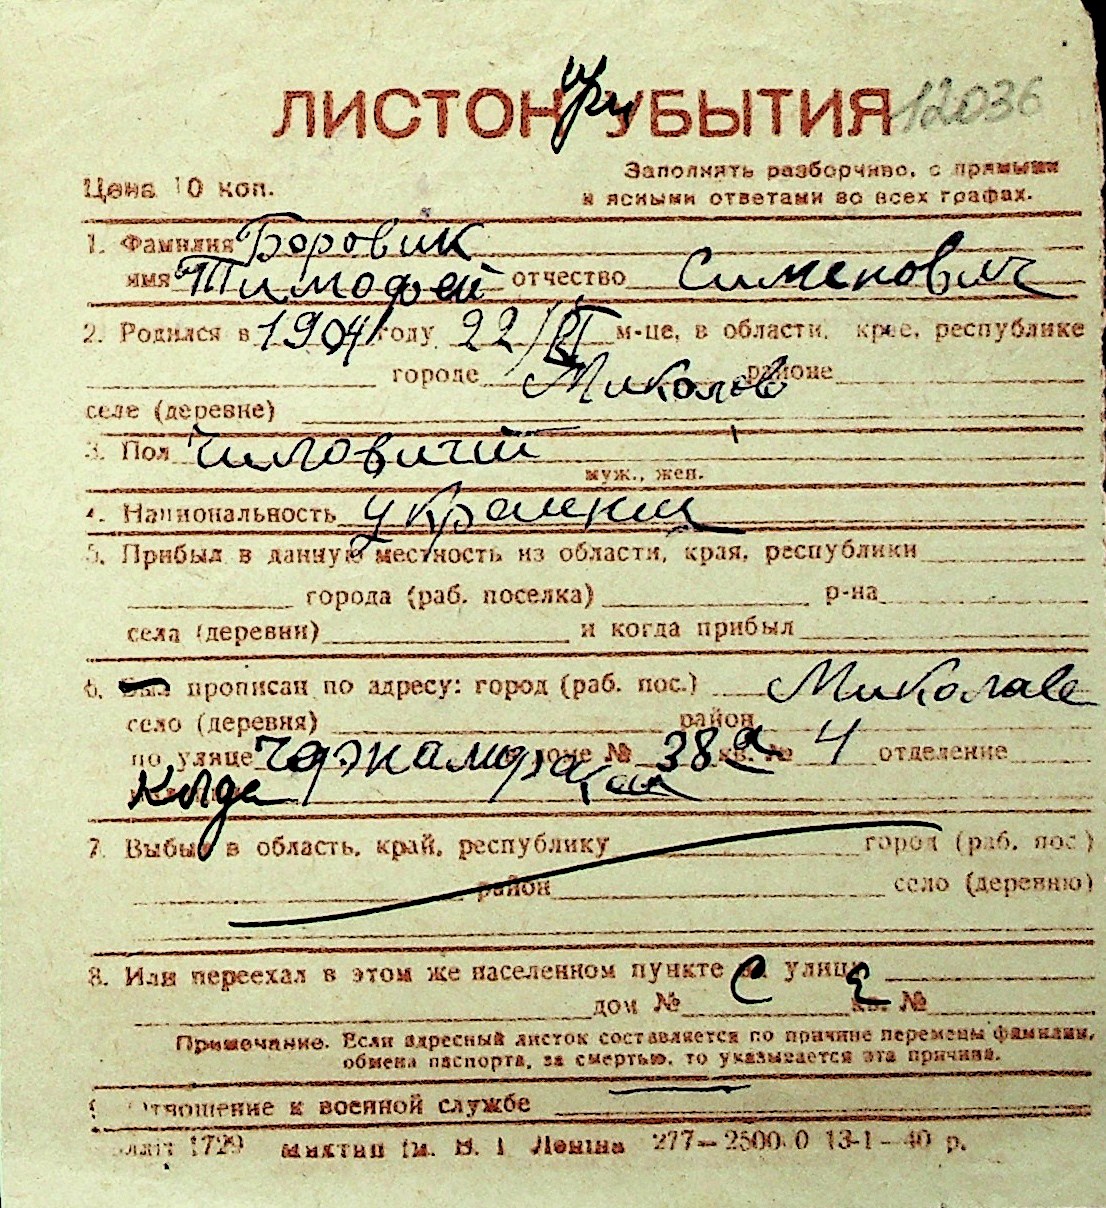 ЛИСТОК при УБЫТИЯ 12036
Цена 10 коп.
Заполнять разборчиво, с прямыми
и ясными ответами во всех графах.
1. Фамилия Боровик
имя Тимофей отчество Сименович
2. Родился в 1904 году 22/VI м-це, в области, крае, республике
городе Миколаїв районе
селе (деревне)
3. Пол Чиловичий
муж., жен.
4. Национальность украинец
5. Прибыл в данную местность из области, края, республики
города (раб. поселка) р-на
села (деревни) и когда прибыл
6. Был прописан по адресу: город (раб. пос.) Миколаев
село (деревня) район
по улице Чорнаморская доме № 38а кв. № 4 отделение
Когда
7. Выбыл в область, край, республику город (раб. пос.)
район село (деревню)
8. Или переехал в этом же населенном пункте на улицу
дом № С кв. №
Примечание. Если адресный листок составляется по причине перемены фамилии,
обмена паспорта, за смертью, то указывается эта причина.
Отношение к военной службе
1729 Миктип ім. В. І Леніна 277—2500.0 13-1—40 р.